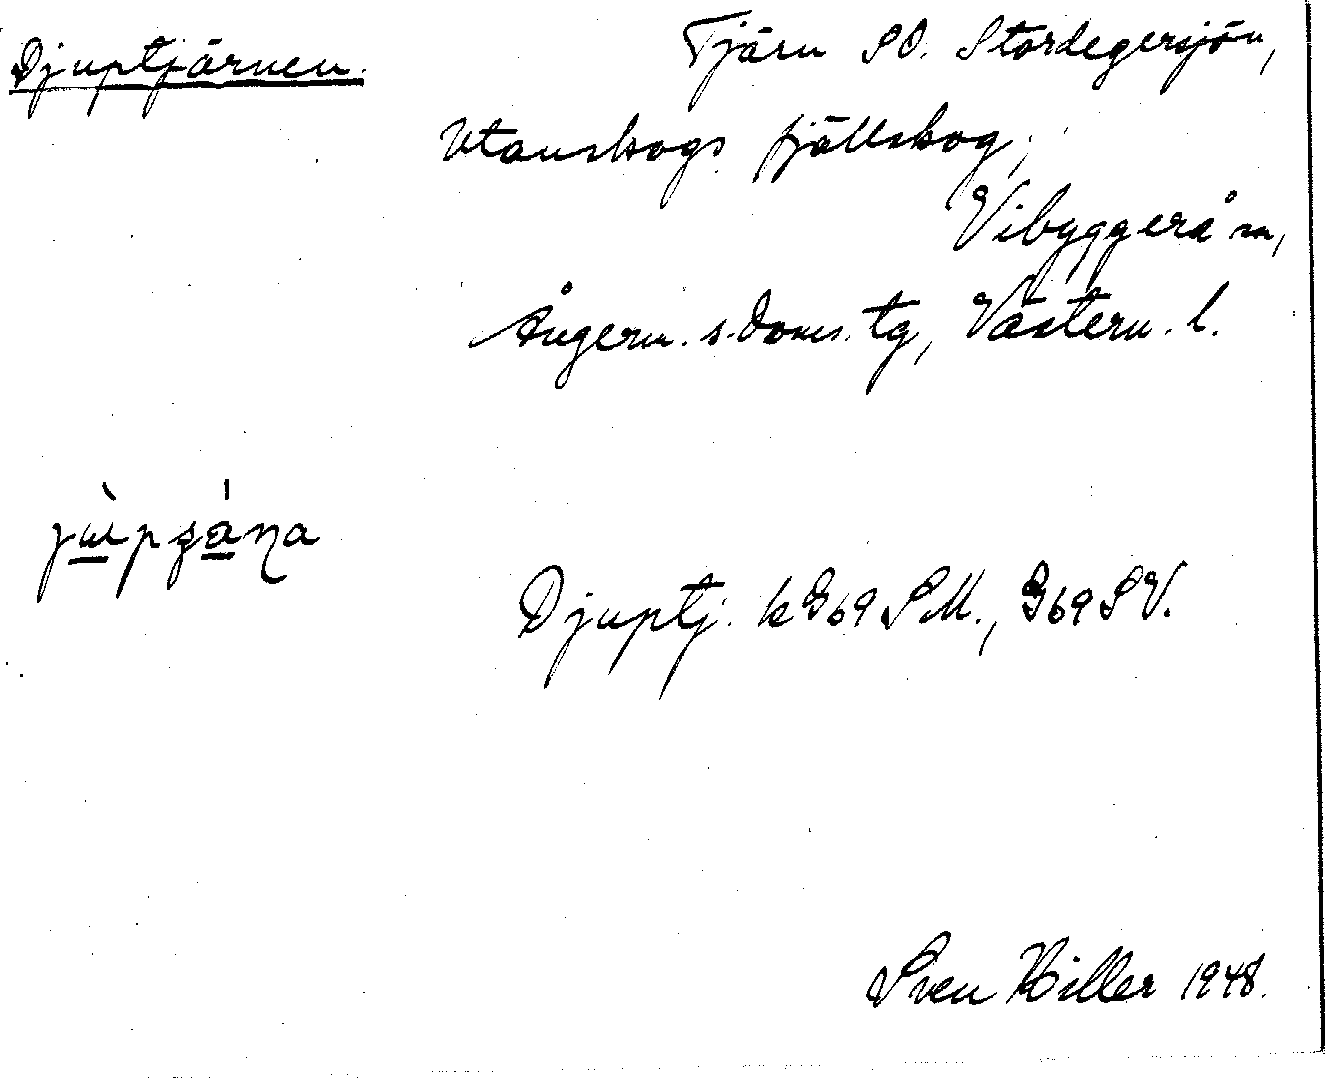 Djuptjärnen.
Tjärn SO. Stordegersjön,
Utanskogs fjällskog,
Vibyggerå sn,
Ångerm. s. doms. tg, Västern. l.
Djuptj. k G69 SM., G69 SV.
Sven Hiller 1948.